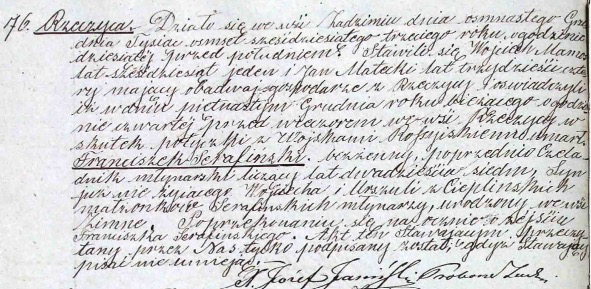 76. Rzeczyca. Działo się we wsi Zadzimiu dnia osmnastego Gru
dnia Tysiąc osmset sześćdziesiątego trzeciego roku, o godzinie
dziesiątej przed południem. Stawili się Wojciech Mamos
lat sześćdziesiąt jeden i Jan Małecki lat trzydzieści czte
ry mający obadwaj gospodarze z Rzeczycy i oświadczyli
iż w dniu piętnastym Grudnia roku bieżącego o godzi
nie czwartej przed wieczorem we wsi Rzeczycy w
skutek potyczki z Wojskami Rossyjskiemi umarł
Franciszek Serafiński. bezżenny, poprzednio Czela
dnik młynarski liczący lat dwadzieścia siedm, Syn
już nie żyjącego Wojciecha i Urszuli z Cieplińskich
małżonków Serafinskich młynarzy, urodzony we wsi
Zimne. Po przekonaniu się naocznie o Zejściu
Franciszka Serafinskiego. Akt ten Stawającym przeczy
tany przez Nas tylko podpisany został, gdyż Stawający
pisać nie umieją.
X. Józef Proboszcz